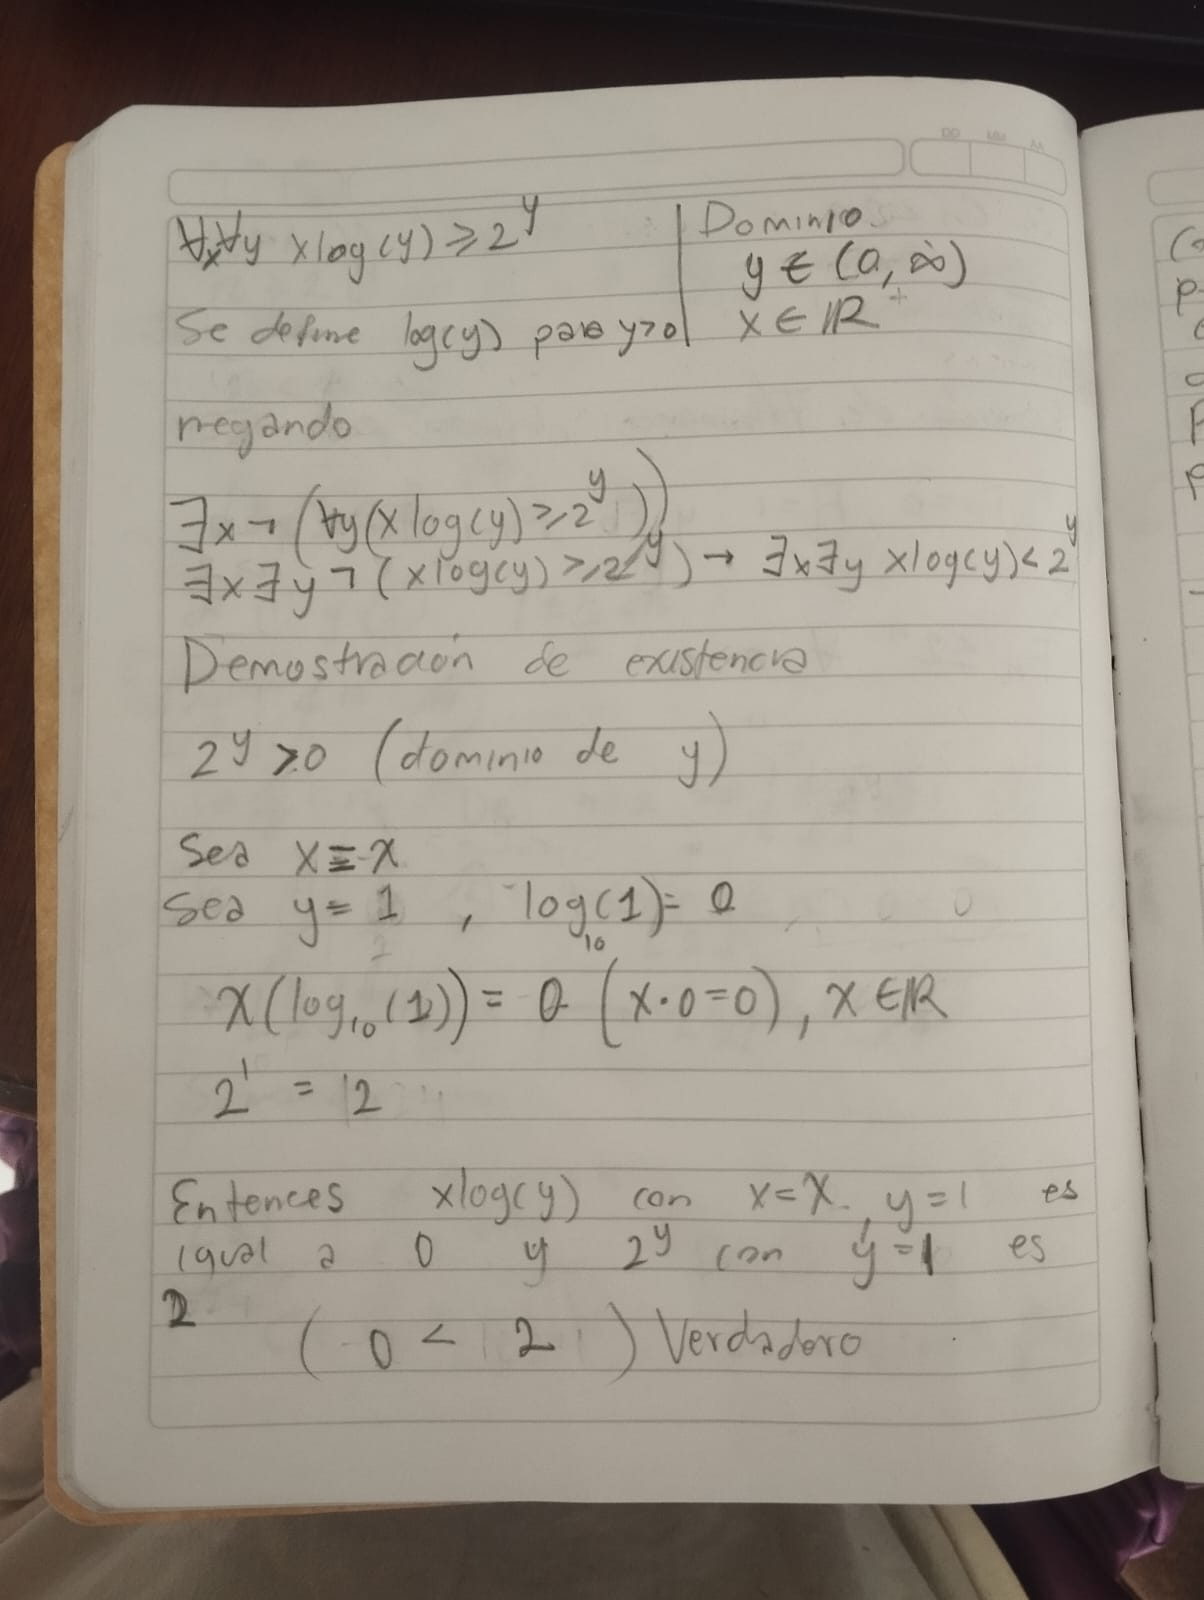 DD MM AA
∀x∀y xlog(y) ≥ 2^y
Dominio
y ∈ (0, ∞)
Se define log(y) para y>0
x ∈ ℝ⁺
negando
∃x ¬ (∀y(x log(y) ≥ 2^y))
∃x∃y ¬ (xlog(y) ≥ 2^y) → ∃x∃y xlog(y) < 2^y
Demostración de existencia
2^y > 0 (dominio de y)
Sea x ≡ x
Sea y = 1 , log₁₀(1) = 0
x(log₁₀(1)) = 0 (x·0=0), x ∈ ℝ
2¹ = 2
Entences xlog(y) con x=x, y=1 es
igual a 0 y 2^y con y=1 es
2
( 0 < 2 ) Verdadero